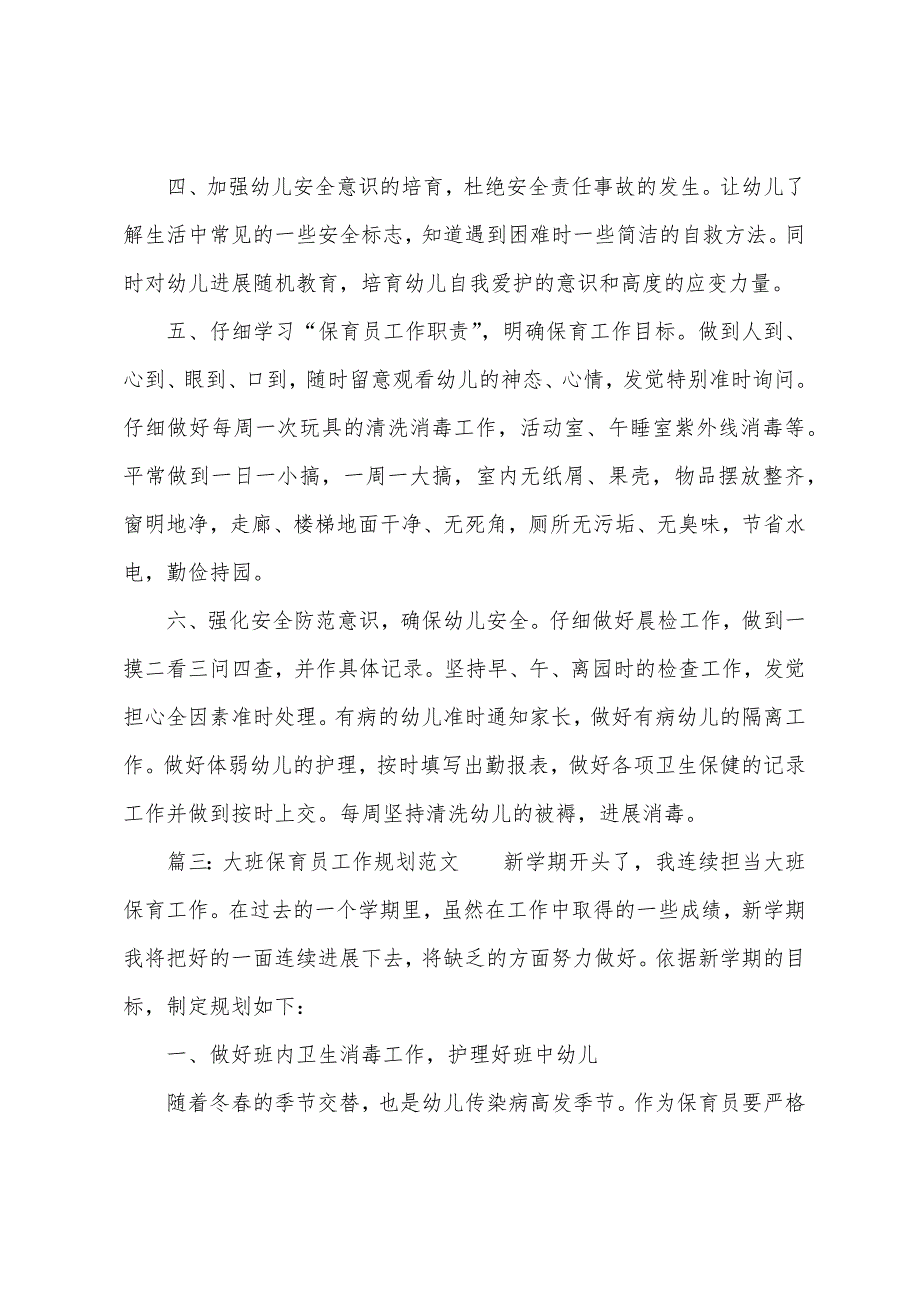 四、加强幼儿安全意识的培育，杜绝安全责任事故的发生。让幼儿了
解生活中常见的一些安全标志，知道遇到困难时一些简洁的自救方法。同
时对幼儿进展随机教育，培育幼儿自我爱护的意识和高度的应变力量。
五、仔细学习“保育员工作职责”，明确保育工作目标。做到人到、
心到、眼到、口到，随时留意观看幼儿的神态、心情，发觉特别准时询问。
仔细做好每周一次玩具的清洗消毒工作，活动室、午睡室紫外线消毒等。
平常做到一日一小搞，一周一大搞，室内无纸屑、果壳，物品摆放整齐，
窗明地净，走廊、楼梯地面干净、无死角，厕所无污垢、无臭味，节省水
电，勤俭持园。
六、强化安全防范意识，确保幼儿安全。仔细做好晨检工作，做到一
摸二看三问四查，并作具体记录。坚持早、午、离园时的检查工作，发觉
担心全因素准时处理。有病的幼儿准时通知家长，做好有病幼儿的隔离工
作。做好体弱幼儿的护理，按时填写出勤报表，做好各项卫生保健的记录
工作并做到按时上交。每周坚持清洗幼儿的被褥，进展消毒。
篇三：大班保育员工作规划范文　　新学期开头了，我连续担当大班
保育工作。在过去的一个学期里，虽然在工作中取得的一些成绩，新学期
我将把好的一面连续进展下去，将缺乏的方面努力做好。依据新学期的目
标，制定规划如下：
一、做好班内卫生消毒工作，护理好班中幼儿
随着冬春的季节交替，也是幼儿传染病高发季节。作为保育员要严格